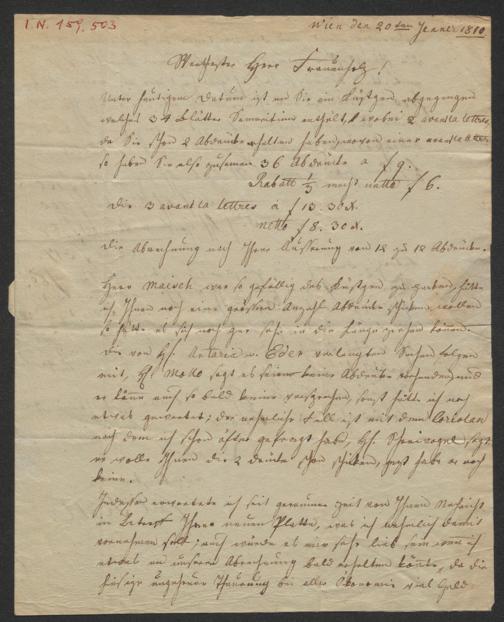 I.N. 159.503
Wien den 20ten Jenner 1810
Werthester Herr Frauenholz!
Unter heutigem Datum ist an Sie ein Kistgen abgegangen
welches 34 Blätter enthält, wobei 2 avant la lettres
da Sie schon 2 Abdrücke erhalten haben, wovon einer avant la lettre
so haben Sie also zusamen 36 Abdrücke a f 9.
Rabatt 1/3 macht netto f 6.
die 3 avant la lettres a f 13. 30 X.
netto f 8. 30 X.
die Abrechnung nach Ihrer Äusserung von 12 zu 12 Abdrücke.
Herr Maisch war so gefällig das Kistgen zu
ich Ihnen noch eine größere Anzahl Abdrücke schicken wollen
so hätte es sich noch gar sehr in die Länge ziehen können.
Die von H. Artaria u. Eder verlangten Sachen folgen
mit, H. Mollo sagt es seien keine Abdrücke vorhanden, und
er könne auch so bald keine versprechen, sonst hätte ich noch
etwas gewartet; der nehmliche Fall ist mit dem Coriolan
nach dem ich schon öfter gefragt hab, H. sagt
er wolle Ihnen die 2 schon schicken, jezt habe er noch
keine.
Indessen erwartete ich seit geraumer Zeit von Ihnen Nachricht
in Betreff Ihrer neuen Platte, was ich nehmlich damit
vornehmen soll; auch würde es mir sehr lieb sein wenn ich
etwas an unserer Abrechnung bald erhalten könte, da die
hiesige ungeheure Theurung bei aller Ökonomie viel Geld